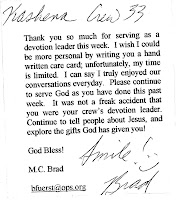 Kashena Crew 33
Thank you so much for serving as a
devotion leader this week. I wish I could
be more personal by writing you a hand
written care card; unfortunately, my time
is limited. I can say I truly enjoyed our
conversations everyday. Please continue
to serve God as you have done this past
week. It was not a freak accident that
you were your crew's devotion leader.
Continue to tell people about Jesus, and
explore the gifts God has given you!
God Bless!
M.C. Brad
Smile :)
bfuerst@ops.org
Brad